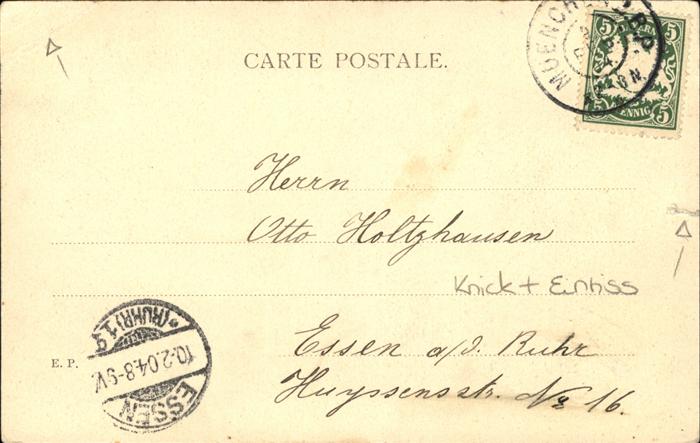 CARTE POSTALE.
MUENCHEN
5 BAYERN 5
5 PFENNIG 5
Herrn
Otto Holtzhausen
Knick + Einriss
Essen a/d. Ruhr
Huyssensstr. No 16.
E. P.
ESSEN
*(RUHR) 1 g
10.2.04.8-9V.